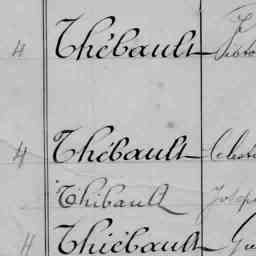 4 Thébault
4 Thébault
Thibault
4 Thiébault